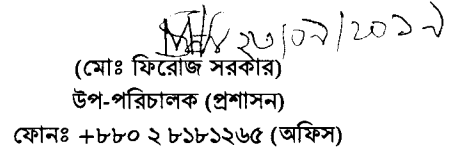 ২৩/০৭/২০১৭
(মোঃ ফিরোজ সরকার)
উপ-পরিচালক (প্রশাসন)
ফোনঃ +৮৮০ ২ ৮১৮১২৬৫ (অফিস)